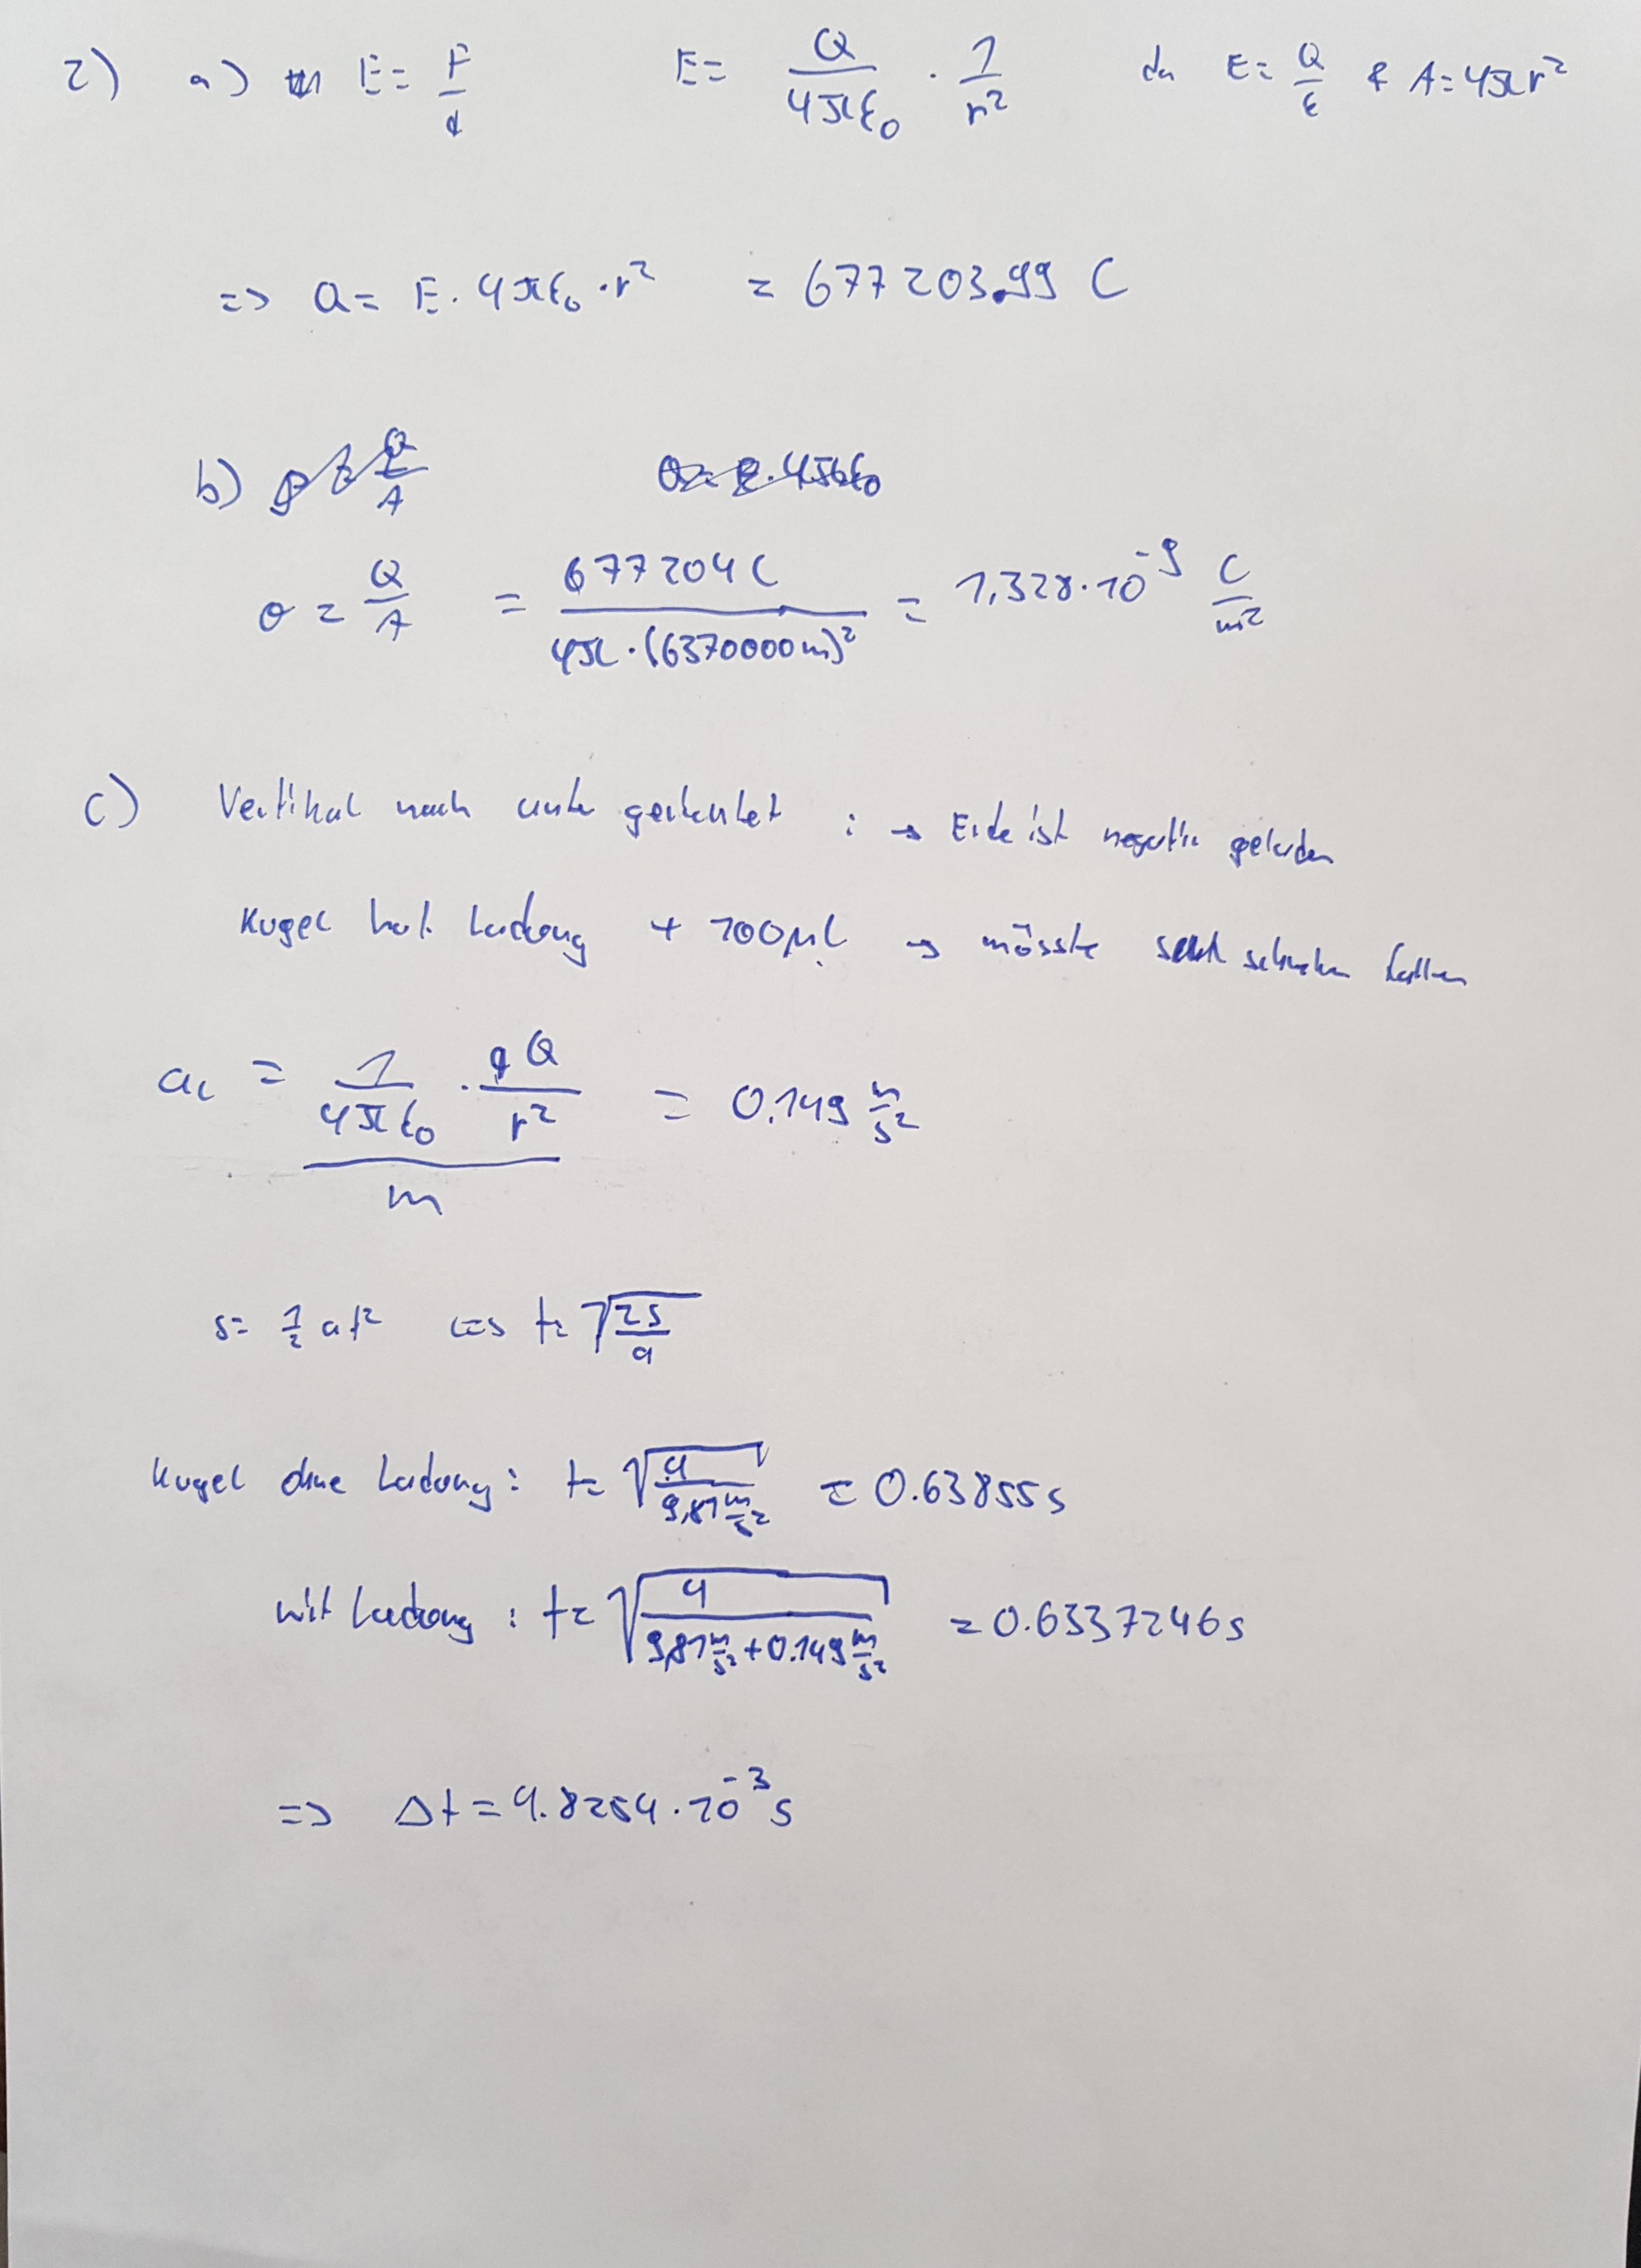 2) a) E = F/q E = Q/(4πε₀) · 1/r² da E = Q/ε & A = 4πr²
=> Q = E · 4πε₀ · r² = 677203.99 C
b)
σ = Q/A = 677204 C/(4π · (6370000m)²) = 1,328 · 10⁻⁹ C/m²
c) Vertikal nach unten gerichtet : → Erde ist negativ geladen
Kugel hat Ladung + 100µC → müsste schneller fallen
a_c = (1/(4πε₀) · qQ/r²)/m = 0.149 m/s²
s = ½ at² <=> t = √(2s/a)
Kugel ohne Ladung : t = √(4/(9,81 m/s²)) = 0.63855 s
mit Ladung : t = √(4/(9,81 m/s² + 0.149 m/s²)) = 0.6337246 s
=> Δt = 4.8254 · 10⁻³ s